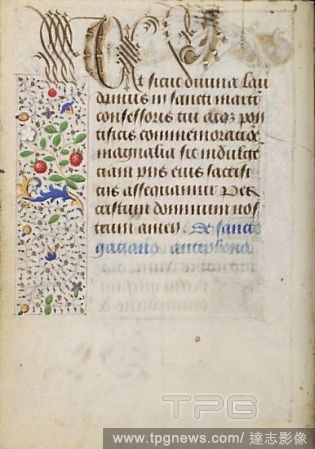 Et sicut divina lau
damus in sancti marti
confessoris tui atqz pon
tificis commemoratiōe
magnalia sic indulge
tiam piis eius
assequamur Per
xpistum dominum nos
trum amen. De sancto
gatiano antephona
TPG
www.tpgnews.com/ 達志影像